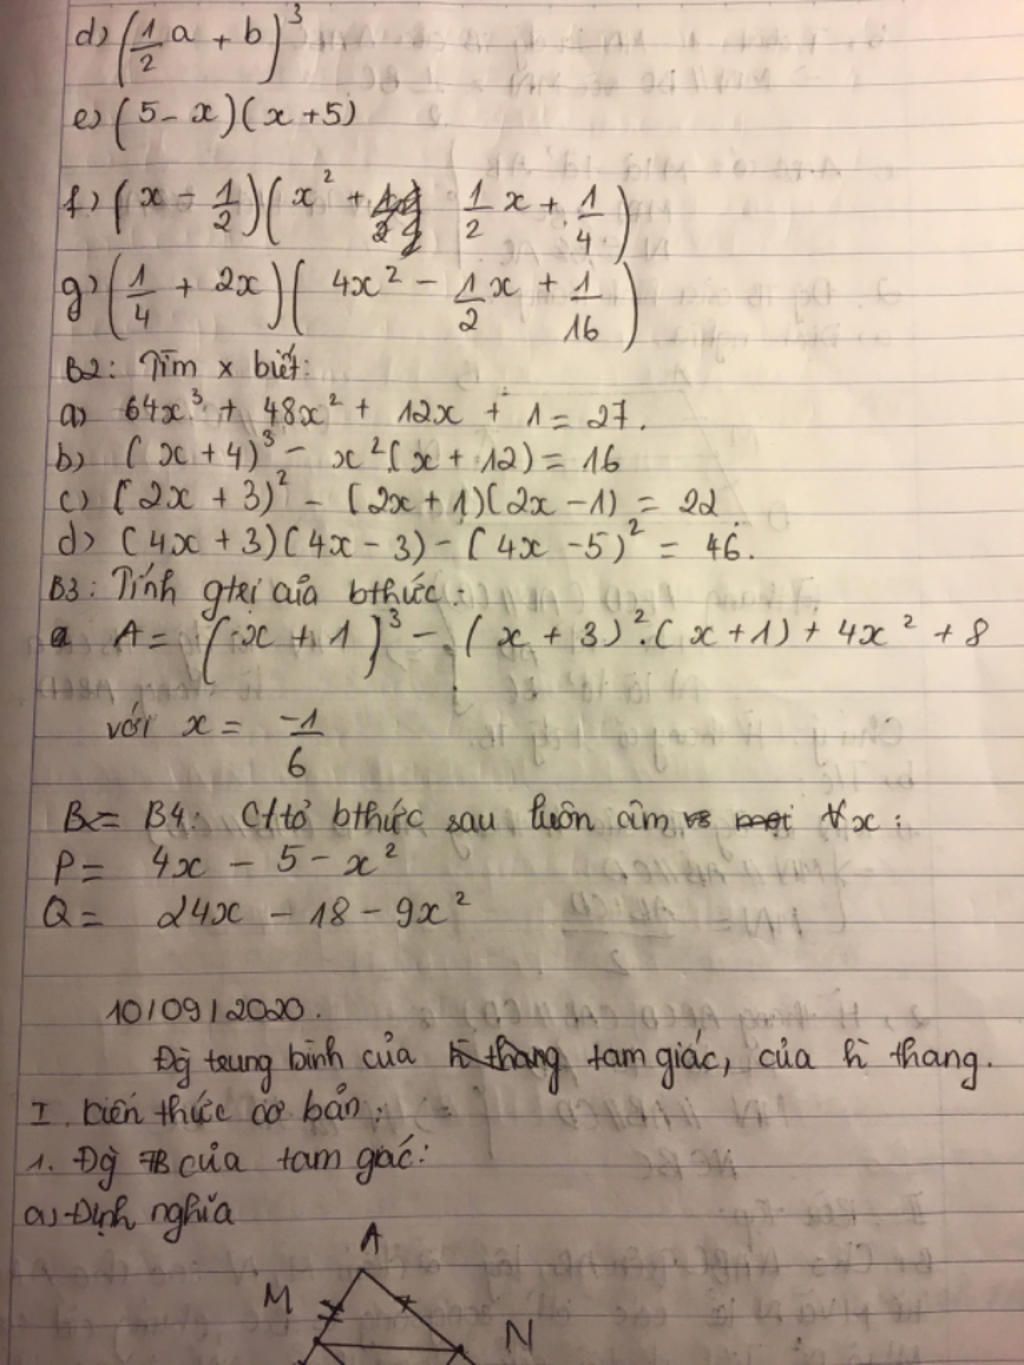 d) (1/2 a + b)³
e) (5 - x)(x + 5)
f) (x - 1/2)(x² + 1/2 x + 1/4)
g) (1/4 + 2x)(4x² - 1/2 x + 1/16)
B2: Tìm x biết:
a) 64x³ + 48x² + 12x + 1 = 27.
b) (x + 4)³ - x²(x + 12) = 16
c) (2x + 3)² - (2x + 1)(2x - 1) = 22
d) (4x + 3)(4x - 3) - (4x - 5)² = 46.
B3: Tính gtrị của bthức:
a A = (x + 1)³ - (x + 3)².(x + 1) + 4x² + 8
với x = -1/6
B = B4: C/tỏ bthức sau luôn âm ∀x:
P = 4x - 5 - x²
Q = 24x - 18 - 9x²
10/09/2020.
Đg trung bình của tam giác, của hì thang.
I. Kiến thức cơ bản:
1. Đg TB của tam gác:
a) Định nghĩa
A
M
N